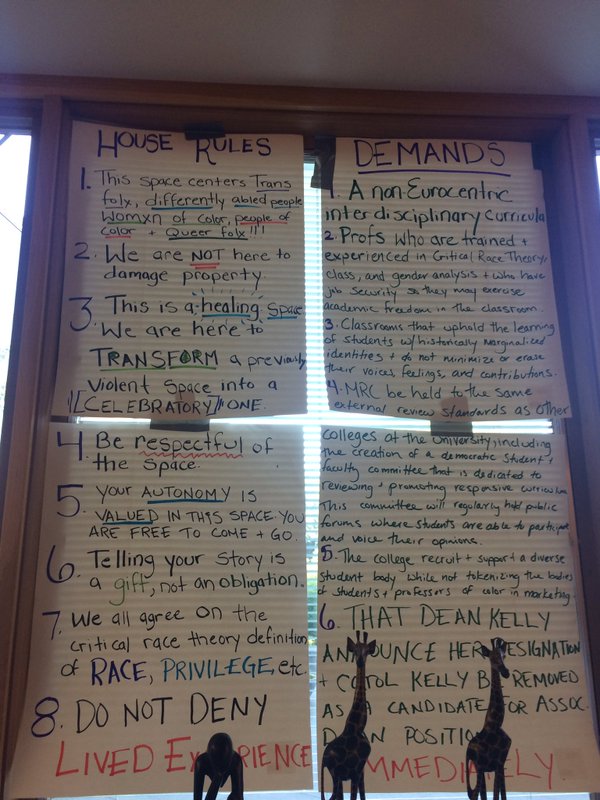 HOUSE RULES
1. This space centers Trans
folx, differently abled people
Womxn of Color, people of
color + Queer folx!!!
2. We are NOT here to
damage property.
3. This is a healing space
We are here to
TRANSFORM a previously
violent space into a
CELEBRATORY ONE.
4. Be respectful of
the space.
5. YOUR AUTONOMY IS
VALUED IN THIS SPACE. YOU
ARE FREE TO COME + GO.
6. Telling your story is
a gift, not an obligation.
7. We all agree on the
critical race theory definition
of RACE, PRIVILEGE, etc.
8. DO NOT DENY
LIVED EXPERIENCE
DEMANDS
1. A non-Eurocentric
interdisciplinary curricula
2. Profs who are trained +
experienced in Critical Race Theory,
class, and gender analysis + who have
job security so they may exercise
academic freedom in the classroom.
3. Classrooms that uphold the learning
of students w/ historically marginalized
identities + do not minimize or erase
their voices, feelings, and contributions.
4. MRC be held to the same
external review standards as other
colleges at the University, including
the creation of a democratic student +
faculty committee that is dedicated to
reviewing + promoting responsive curriculum
This committee will regularly hold public
forums where students are able to participate
and voice their opinions.
5. The college recruit + support a diverse
student body while not tokenizing the bodies
of students + professors of color in marketing.
6. THAT DEAN KELLY
ANNOUNCE HER RESIGNATION
+ COTOL KELLY BE REMOVED
AS A CANDIDATE FOR ASSOC.
DEAN POSITION
IMMEDIATELY.